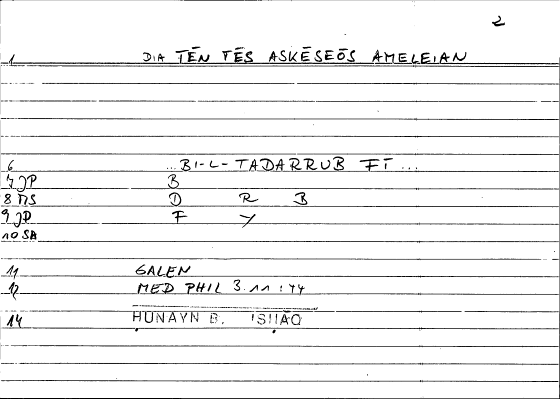 2
1 DIA TĒN TĒS ASKĒSEŌS AMELEIAN
6 ...BI-L-TADARRUB FĪ...
7 JP B
8 MS D R B
9 JP F Y
10 SA
11 GALEN
12 MED PHIL 3.11:14
14 ḤUNAYN B. ISḤĀQ